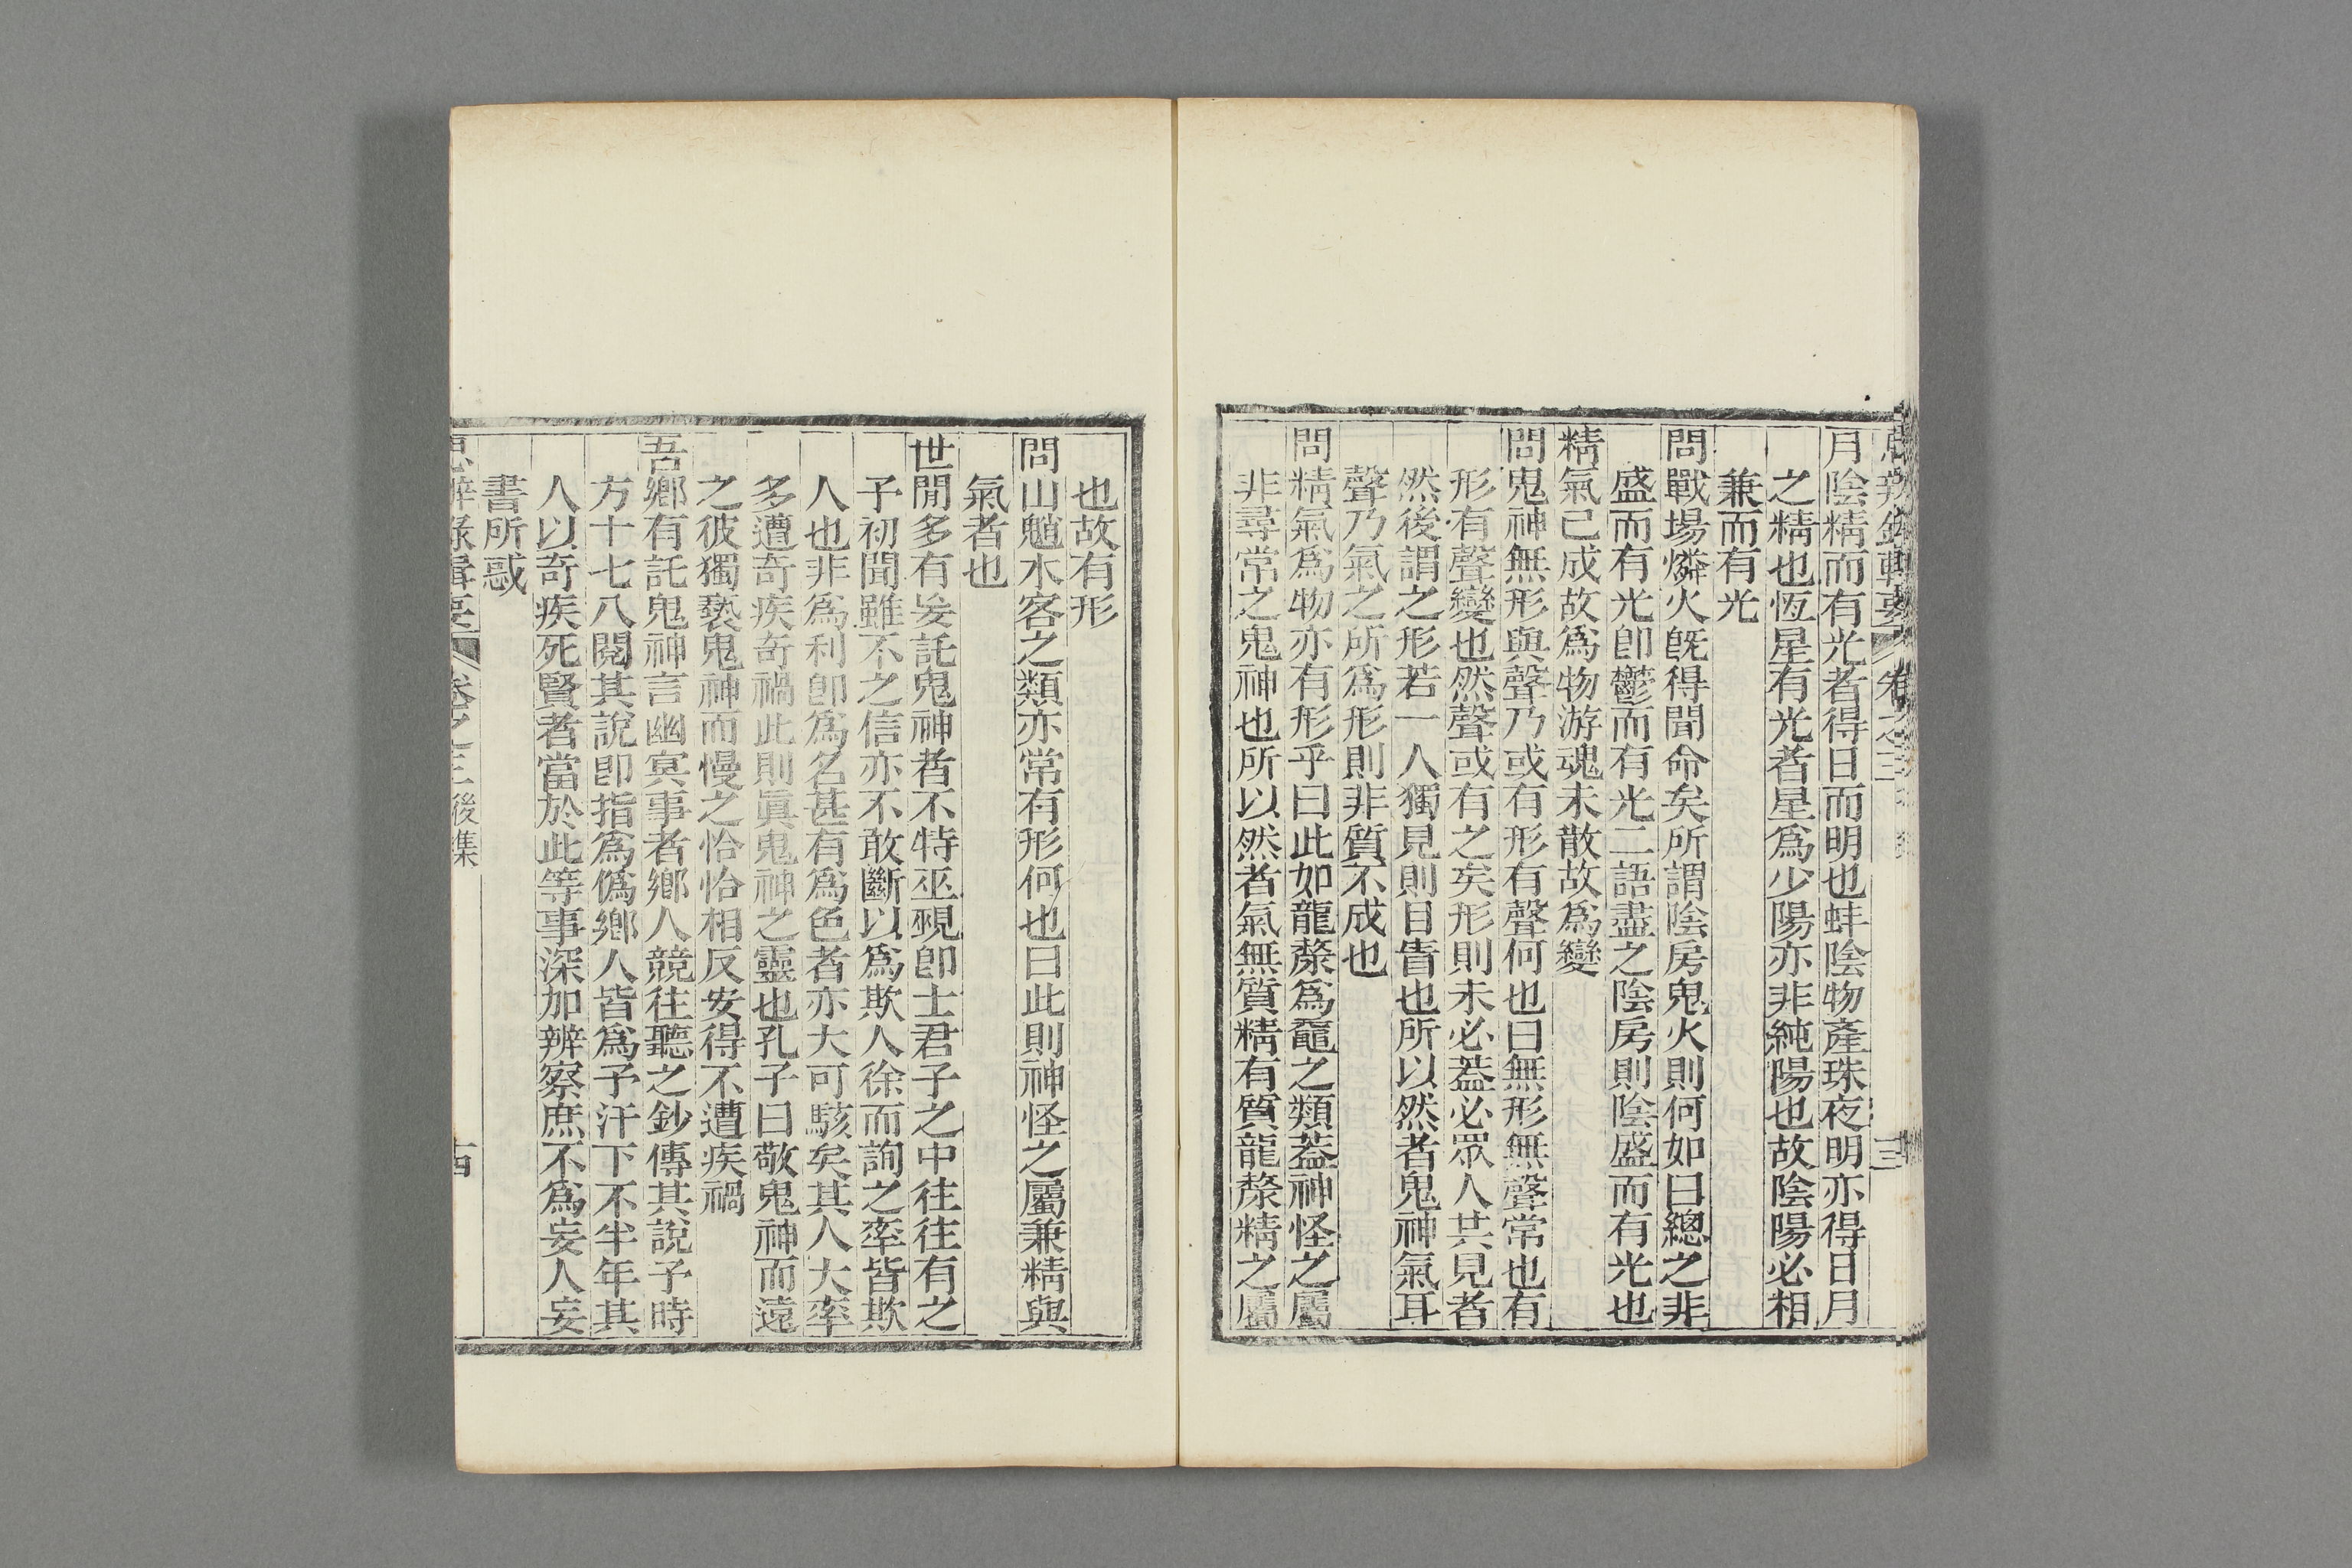 思辨錄輯要 卷之三 三
月陰精而有光者得日而明也蚌陰物產珠夜明亦得日月
之精也恆星有光者星爲少陽亦非純陽也故陰陽必相
兼而有光
問戰場燐火旣得聞命矣所謂陰房鬼火則何如曰總之非
盛而有光卽鬱而有光二語盡之陰房則陰盛而有光也
精氣已成故爲物游魂未散故爲變
問鬼神無形與聲乃或有形有聲何也曰無形無聲常也有
形有聲變也然聲或有之矣形則未必葢必眾人共見者
然後謂之形若一人獨見則目眚也所以然者鬼神氣耳
聲乃氣之所爲形則非質不成也
問精氣爲物亦有形乎曰此如龍漦爲黿之類葢神怪之屬
非尋常之鬼神也所以然者氣無質精有質龍漦精之屬
也故有形
問山魈木客之類亦常有形何也曰此則神怪之屬兼精與
氣者也
世閒多有妄託鬼神者不特巫覡卽士君子之中往往有之
予初聞雖不之信亦不敢斷以爲欺人徐而詢之率皆欺
人也非爲利卽爲名甚有爲色者亦大可駭矣其人大率
多遭奇疾奇禍此則眞鬼神之靈也孔子曰敬鬼神而遠
之彼獨褻鬼神而慢之恰恰相反安得不遭疾禍
吾鄉有託鬼神言幽冥事者鄉人競往聽之鈔傳其說予時
方十七八閱其說卽指爲僞鄉人皆爲予汗下不半年其
人以奇疾死賢者當於此等事深加辨察庶不爲妄人妄
書所惑
思辨錄輯要 卷之三 後集